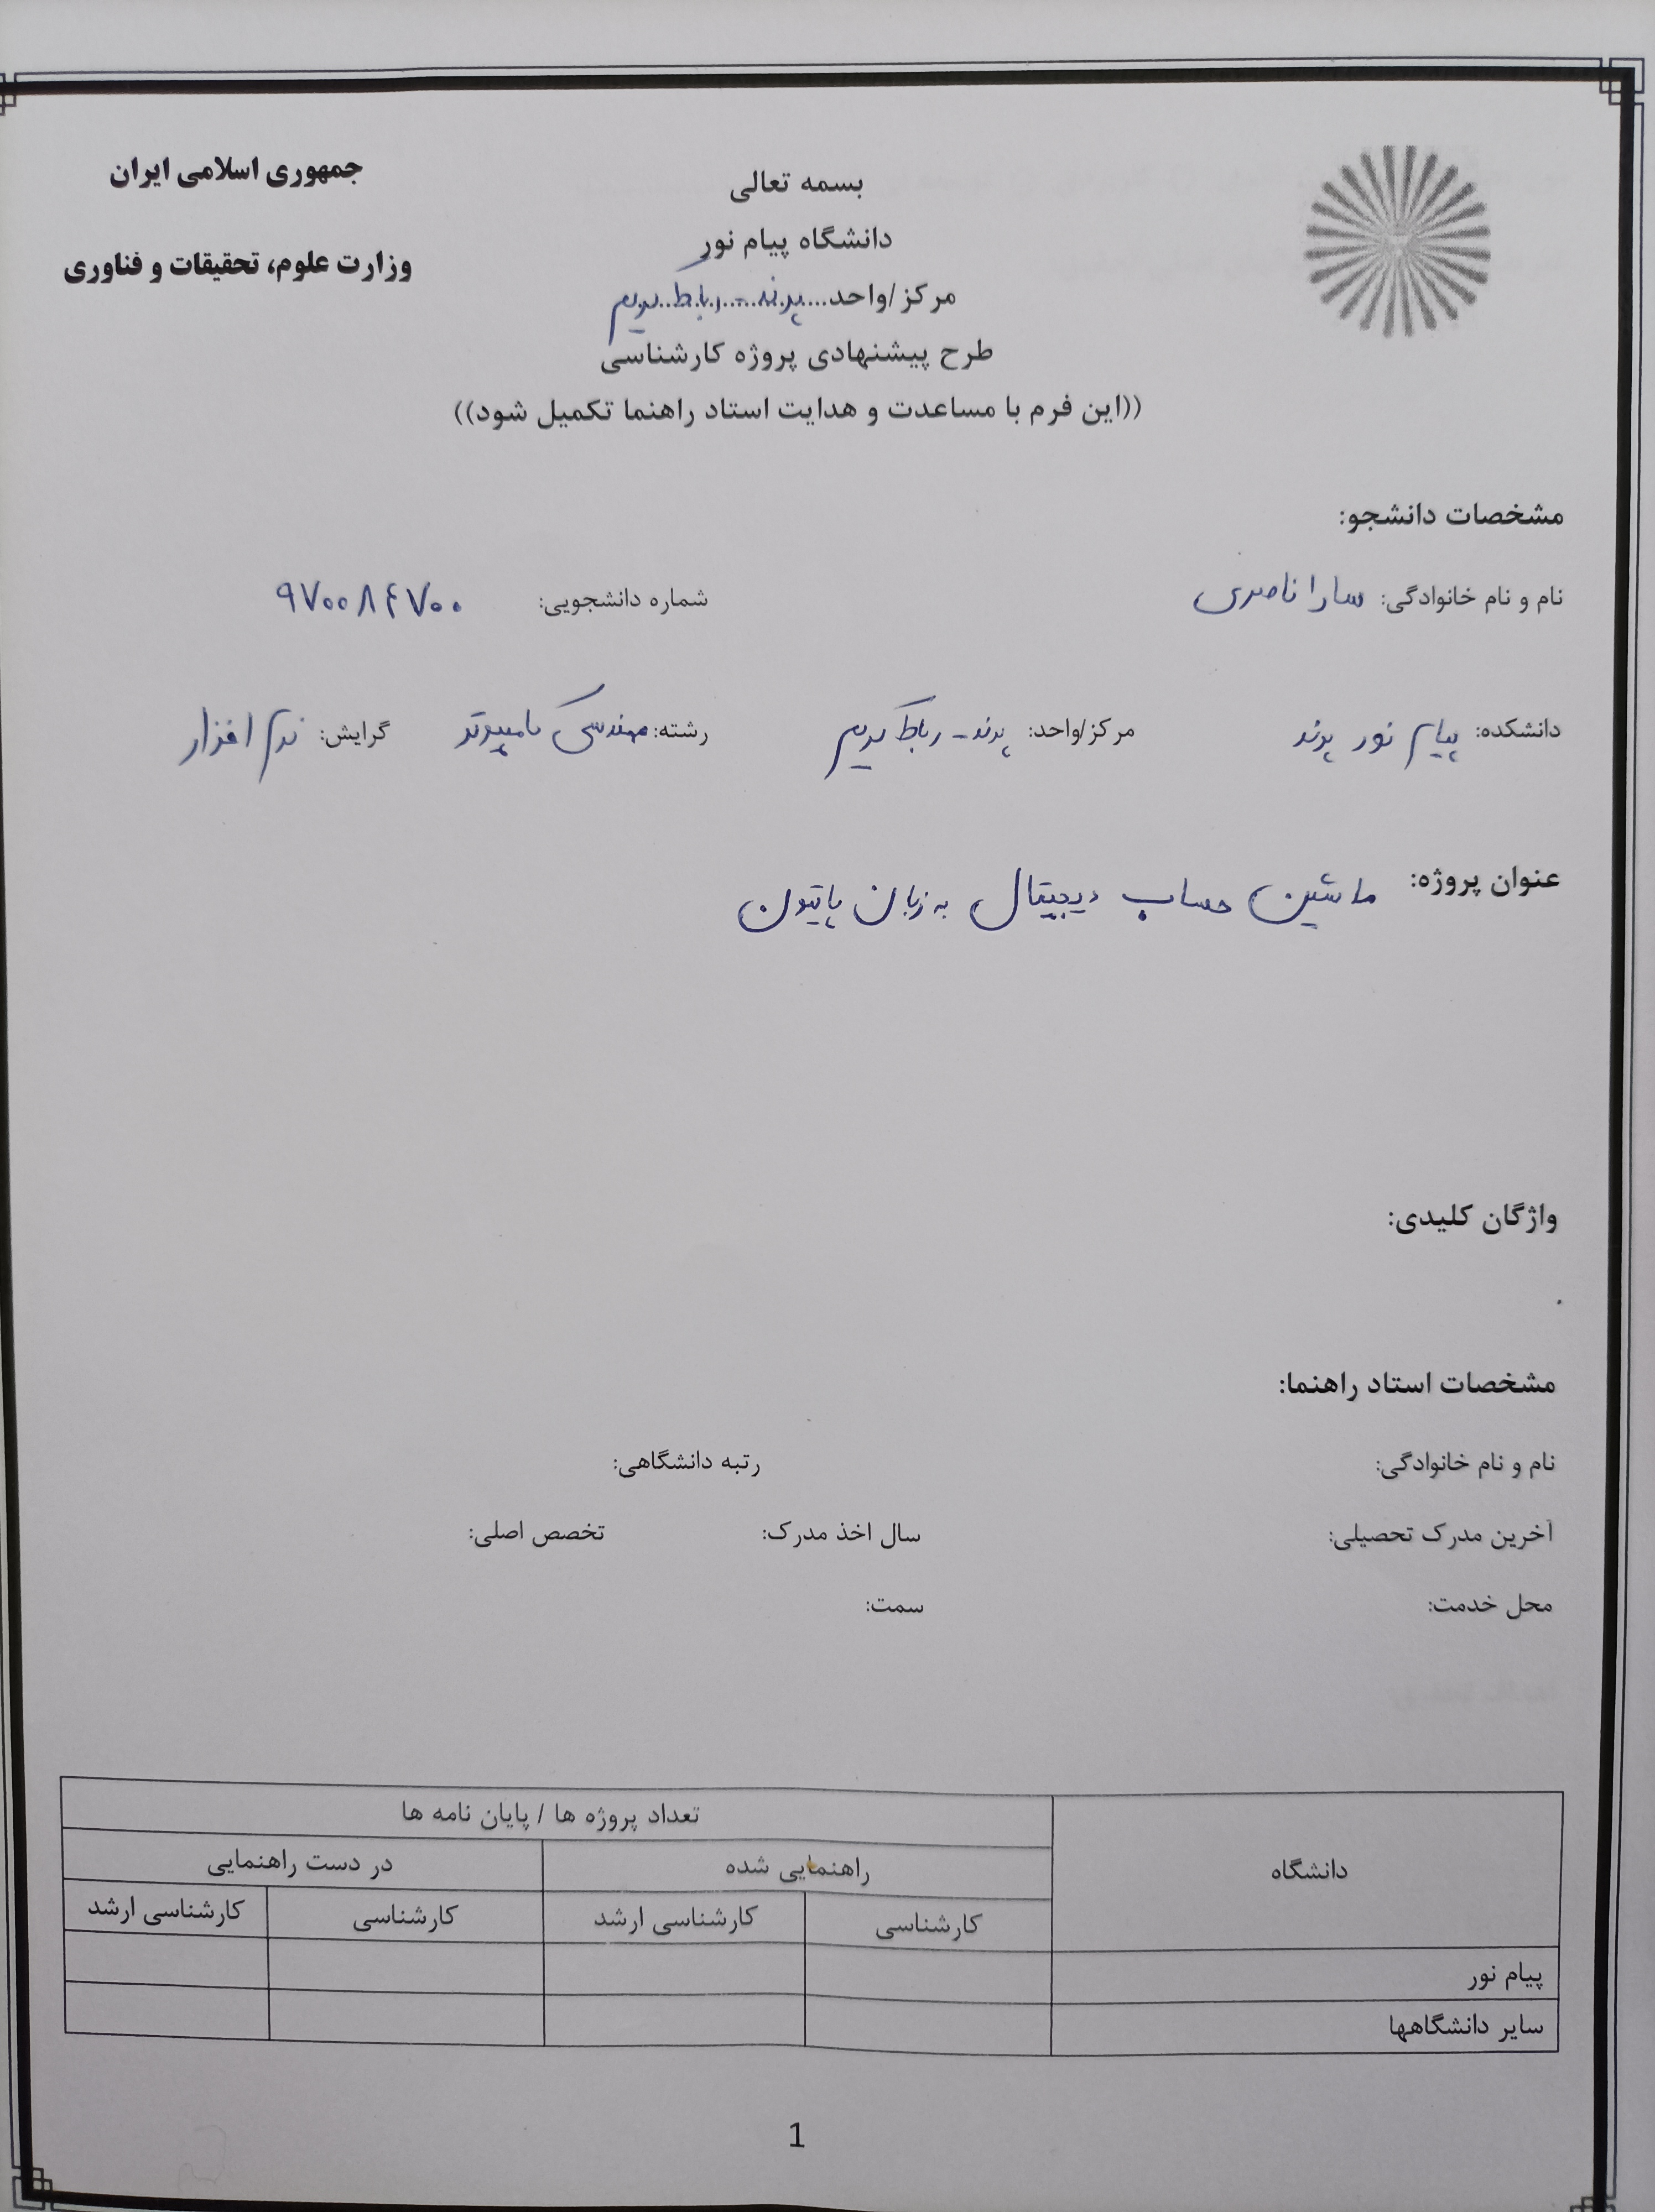 جمهوری اسلامی ایران
وزارت علوم، تحقیقات و فناوری
بسمه تعالی
دانشگاه پیام نور
مرکز/واحد....پرند - رباط کریم
طرح پیشنهادی پروژه کارشناسی
((این فرم با مساعدت و هدایت استاد راهنما تکمیل شود))
مشخصات دانشجو:
نام و نام خانوادگی: سارا ناصری شماره دانشجویی: ۹۷۰۰۸۴۷۰۰
دانشکده: پیام نور پرند مرکز/واحد: پرند - رباط کریم رشته: مهندسی کامپیوتر گرایش: نرم افزار
عنوان پروژه: ماشین حساب دیجیتال به زبان پایتون
واژگان کلیدی:
.
مشخصات استاد راهنما:
نام و نام خانوادگی: رتبه دانشگاهی:
آخرین مدرک تحصیلی: سال اخذ مدرک: تخصص اصلی:
محل خدمت: سمت:
دانشگاه تعداد پروژه ها / پایان نامه ها
راهنمایی شده در دست راهنمایی
کارشناسی کارشناسی ارشد کارشناسی کارشناسی ارشد
پیام نور
سایر دانشگاهها
1